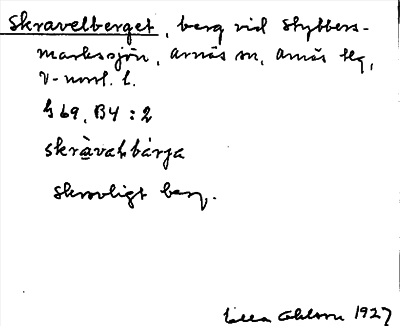 Skravelberget, berg vid Stybbers-
markssjön, Arnäs sn, Arnäs tg,
V-norrl. l.
G 69, B4 : 2
skràvalbárja
skrovligt berg.
Ohlson 1927